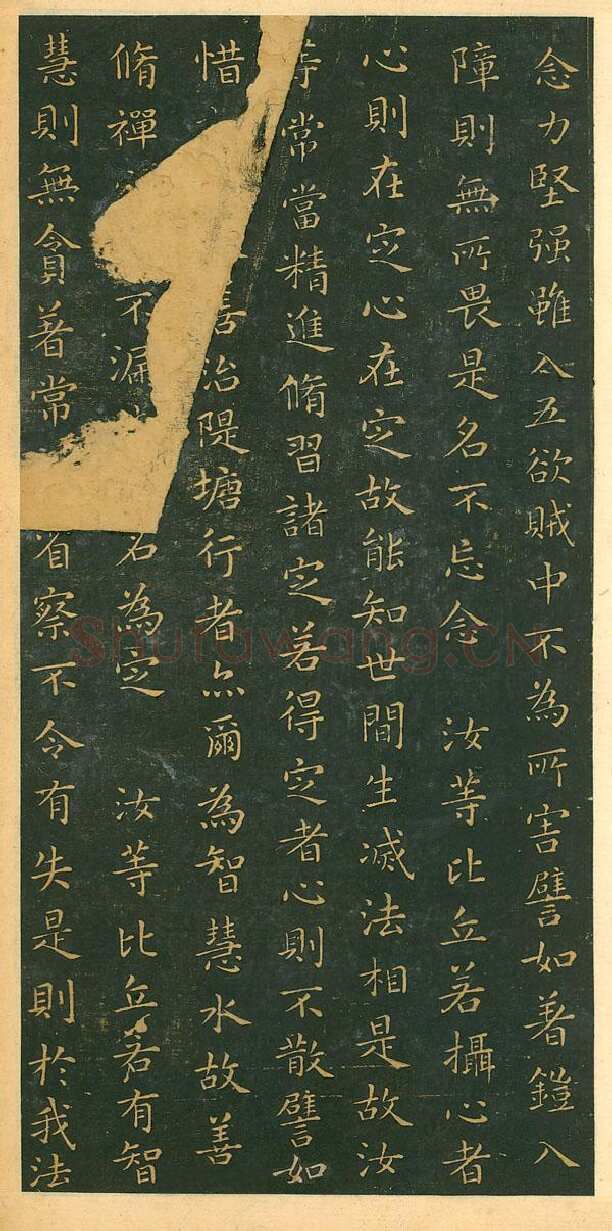 念力堅强雖入五欲賊中不為所害譬如著鎧入
障則無所畏是名不忘念 汝等比丘若攝心者
心則在定心在定故能知世間生滅法相是故汝
等常當精進脩習諸定若得定者心則不散譬如
惜善治隄塘行者亦爾為智慧水故善
脩禪不漏名為定 汝等比丘若有智
慧則無貪著常省察不令有失是則於我法
Shufawang.CN